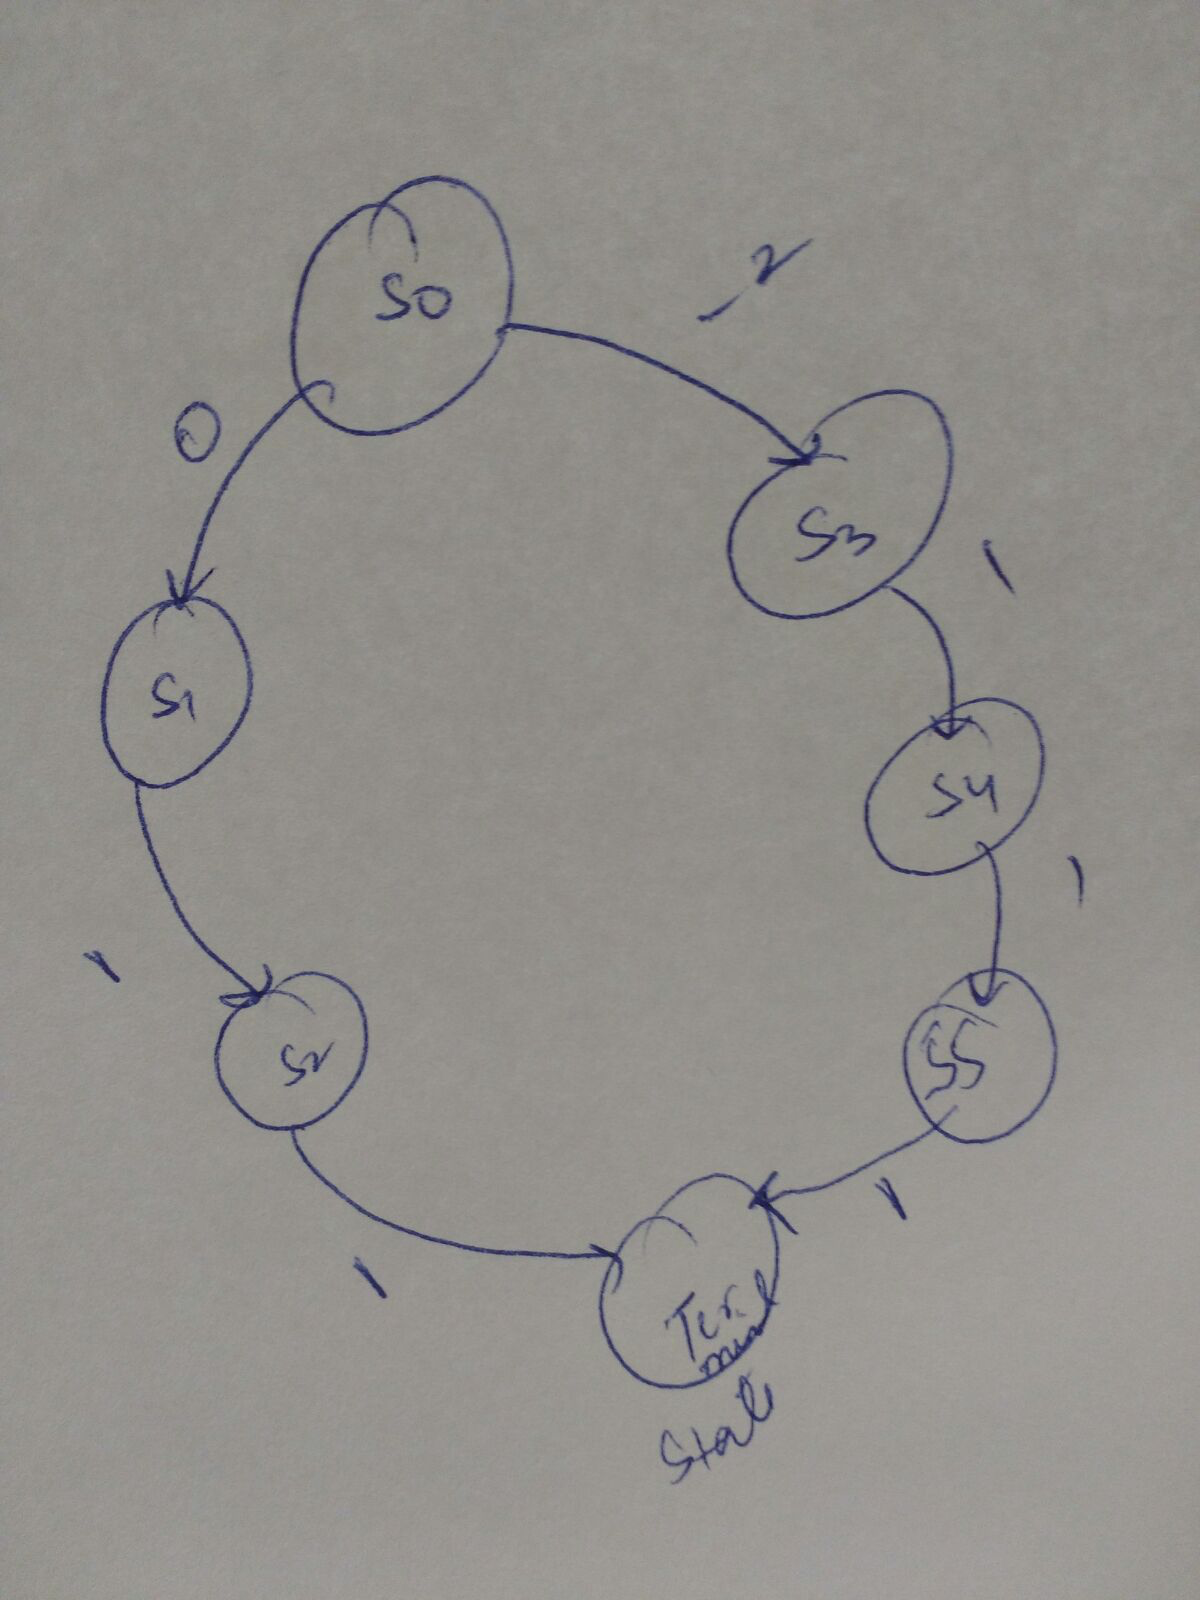 S0
-2
0
S3
1
S1
S4
1
1
S2
S5
1
1
Ter
minal
State